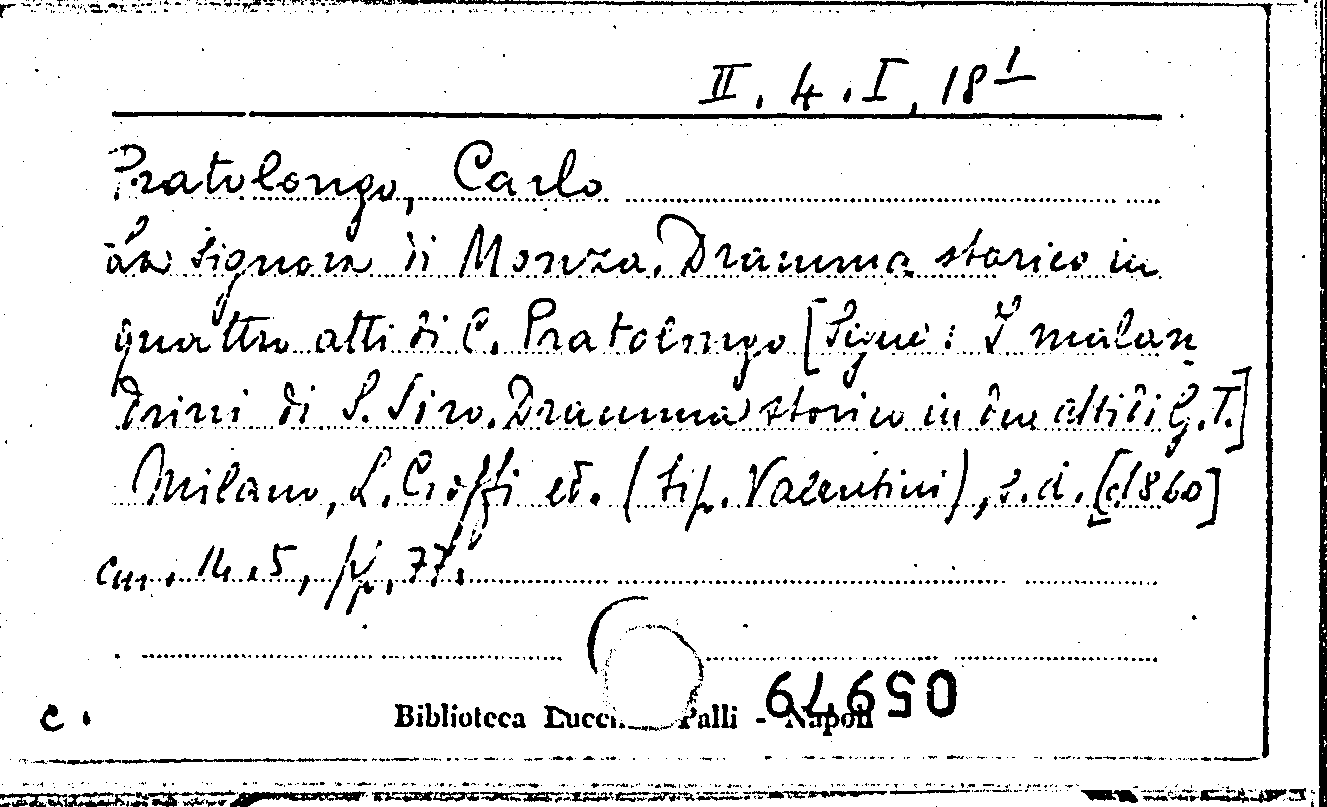 II. 4. I, 18¹
Pratolongo, Carlo
La signora di Monza. Dramma storico in
quattro atti di C. Pratolongo [Segue: I malan
drini di S. Siro. Dramma storico in due atti di G. T.]
Milano, L. Cioffi ed. (tip. Valentini), s.d. [1860]
cm. 14.5, pp. 77.
c. Biblioteca Lucchesi Palli - Napoli
059479